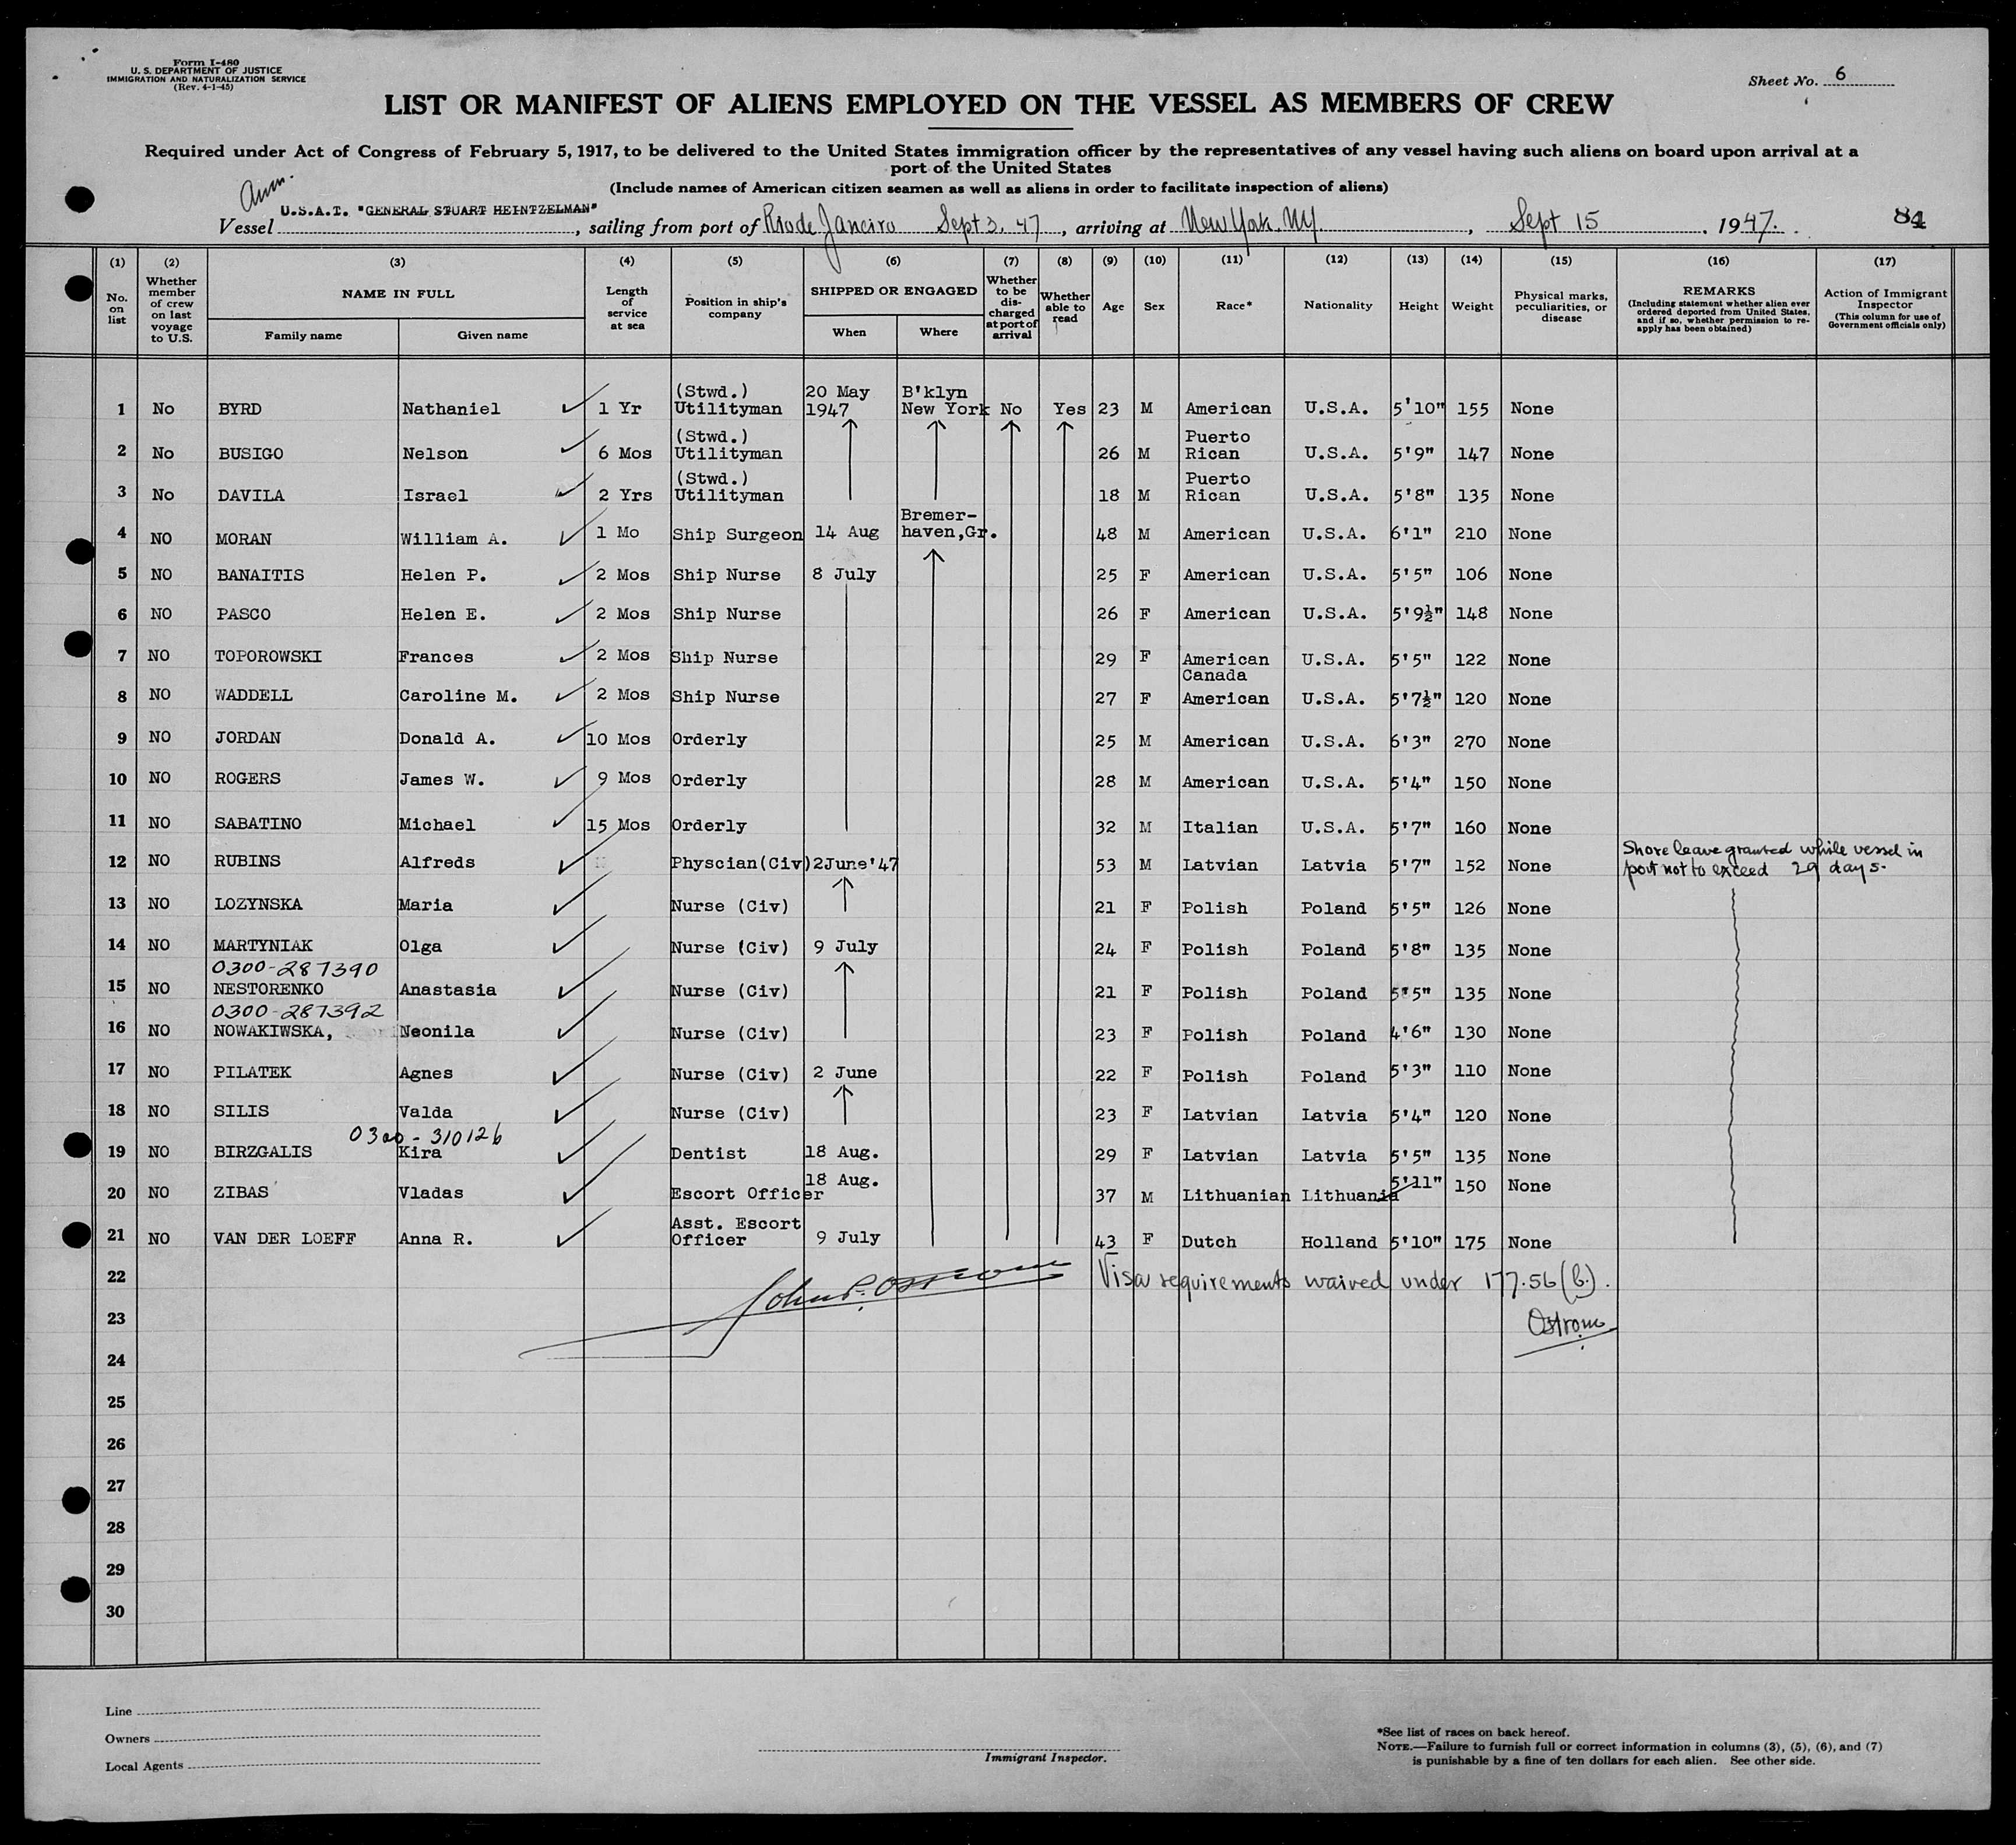 Form I-480
U. S. DEPARTMENT OF JUSTICE
IMMIGRATION AND NATURALIZATION SERVICE
(Rev. 4-1-45)
Sheet No. 6
LIST OR MANIFEST OF ALIENS EMPLOYED ON THE VESSEL AS MEMBERS OF CREW
Required under Act of Congress of February 5, 1917, to be delivered to the United States immigration officer by the representatives of any vessel having such aliens on board upon arrival at a
port of the United States
(Include names of American citizen seamen as well as aliens in order to facilitate inspection of aliens)
Am.
Vessel U.S.A.T. "GENERAL STUART HEINTZELMAN", sailing from port of Rio de Janeiro Sept 3. 47, arriving at New York. NY., Sept 15, 1947. 84
(1) No. on list
(2) Whether member of crew on last voyage to U.S.
(3) NAME IN FULL Family name Given name
(4) Length of service at sea
(5) Position in ship's company
(6) SHIPPED OR ENGAGED When Where
(7) Whether to be discharged at port of arrival
(8) Whether able to read
(9) Age
(10) Sex
(11) Race*
(12) Nationality
(13) Height
(14) Weight
(15) Physical marks, peculiarities, or disease
(16) REMARKS (Including statement whether alien ever ordered deported from United States, and if so, whether permission to reapply has been obtained)
(17) Action of Immigrant Inspector (This column for use of Government officials only)
1 No BYRD Nathaniel 1 Yr (Stwd.) Utilityman 20 May 1947 B'klyn New York No Yes 23 M American U.S.A. 5'10" 155 None
2 No BUSIGO Nelson 6 Mos (Stwd.) Utilityman 26 M Puerto Rican U.S.A. 5'9" 147 None
3 No DAVILA Israel 2 Yrs (Stwd.) Utilityman 18 M Puerto Rican U.S.A. 5'8" 135 None
4 NO MORAN William A. 1 Mo Ship Surgeon 14 Aug Bremer-haven,Gr. 48 M American U.S.A. 6'1" 210 None
5 NO BANAITIS Helen P. 2 Mos Ship Nurse 8 July 25 F American U.S.A. 5'5" 106 None
6 NO PASCO Helen E. 2 Mos Ship Nurse 26 F American U.S.A. 5'9½" 148 None
7 NO TOPOROWSKI Frances 2 Mos Ship Nurse 29 F American U.S.A. 5'5" 122 None
8 NO WADDELL Caroline M. 2 Mos Ship Nurse 27 F Canada American U.S.A. 5'7½" 120 None
9 NO JORDAN Donald A. 10 Mos Orderly 25 M American U.S.A. 6'3" 270 None
10 NO ROGERS James W. 9 Mos Orderly 28 M American U.S.A. 5'4" 150 None
11 NO SABATINO Michael 15 Mos Orderly 32 M Italian U.S.A. 5'7" 160 None
12 NO RUBINS Alfreds Physcian(Civ) 2June'47 53 M Latvian Latvia 5'7" 152 None Shore leave granted while vessel in port not to exceed 29 days.
13 NO LOZYNSKA Maria Nurse (Civ) 21 F Polish Poland 5'5" 126 None
14 NO MARTYNIAK Olga Nurse (Civ) 9 July 24 F Polish Poland 5'8" 135 None
0300-287390
15 NO NESTORENKO Anastasia Nurse (Civ) 21 F Polish Poland 5'5" 135 None
0300-287392
16 NO NOWAKIWSKA, Neonila Nurse (Civ) 23 F Polish Poland 4'6" 130 None
17 NO PILATEK Agnes Nurse (Civ) 2 June 22 F Polish Poland 5'3" 110 None
18 NO SILIS Valda Nurse (Civ) 23 F Latvian Latvia 5'4" 120 None
0300-310126
19 NO BIRZGALIS Kira Dentist 18 Aug. 29 F Latvian Latvia 5'5" 135 None
20 NO ZIBAS Vladas Escort Officer 18 Aug. 37 M Lithuanian Lithuania 5'11" 150 None
21 NO VAN DER LOEFF Anna R. Asst. Escort Officer 9 July 43 F Dutch Holland 5'10" 175 None
22 John P. Ostrom Visa requirements waived under 177.56(b).
23 Ostrom
24
25
26
27
28
29
30
Line
Owners
Local Agents
Immigrant Inspector.
*See list of races on back hereof.
NOTE.—Failure to furnish full or correct information in columns (3), (5), (6), and (7)
is punishable by a fine of ten dollars for each alien. See other side.